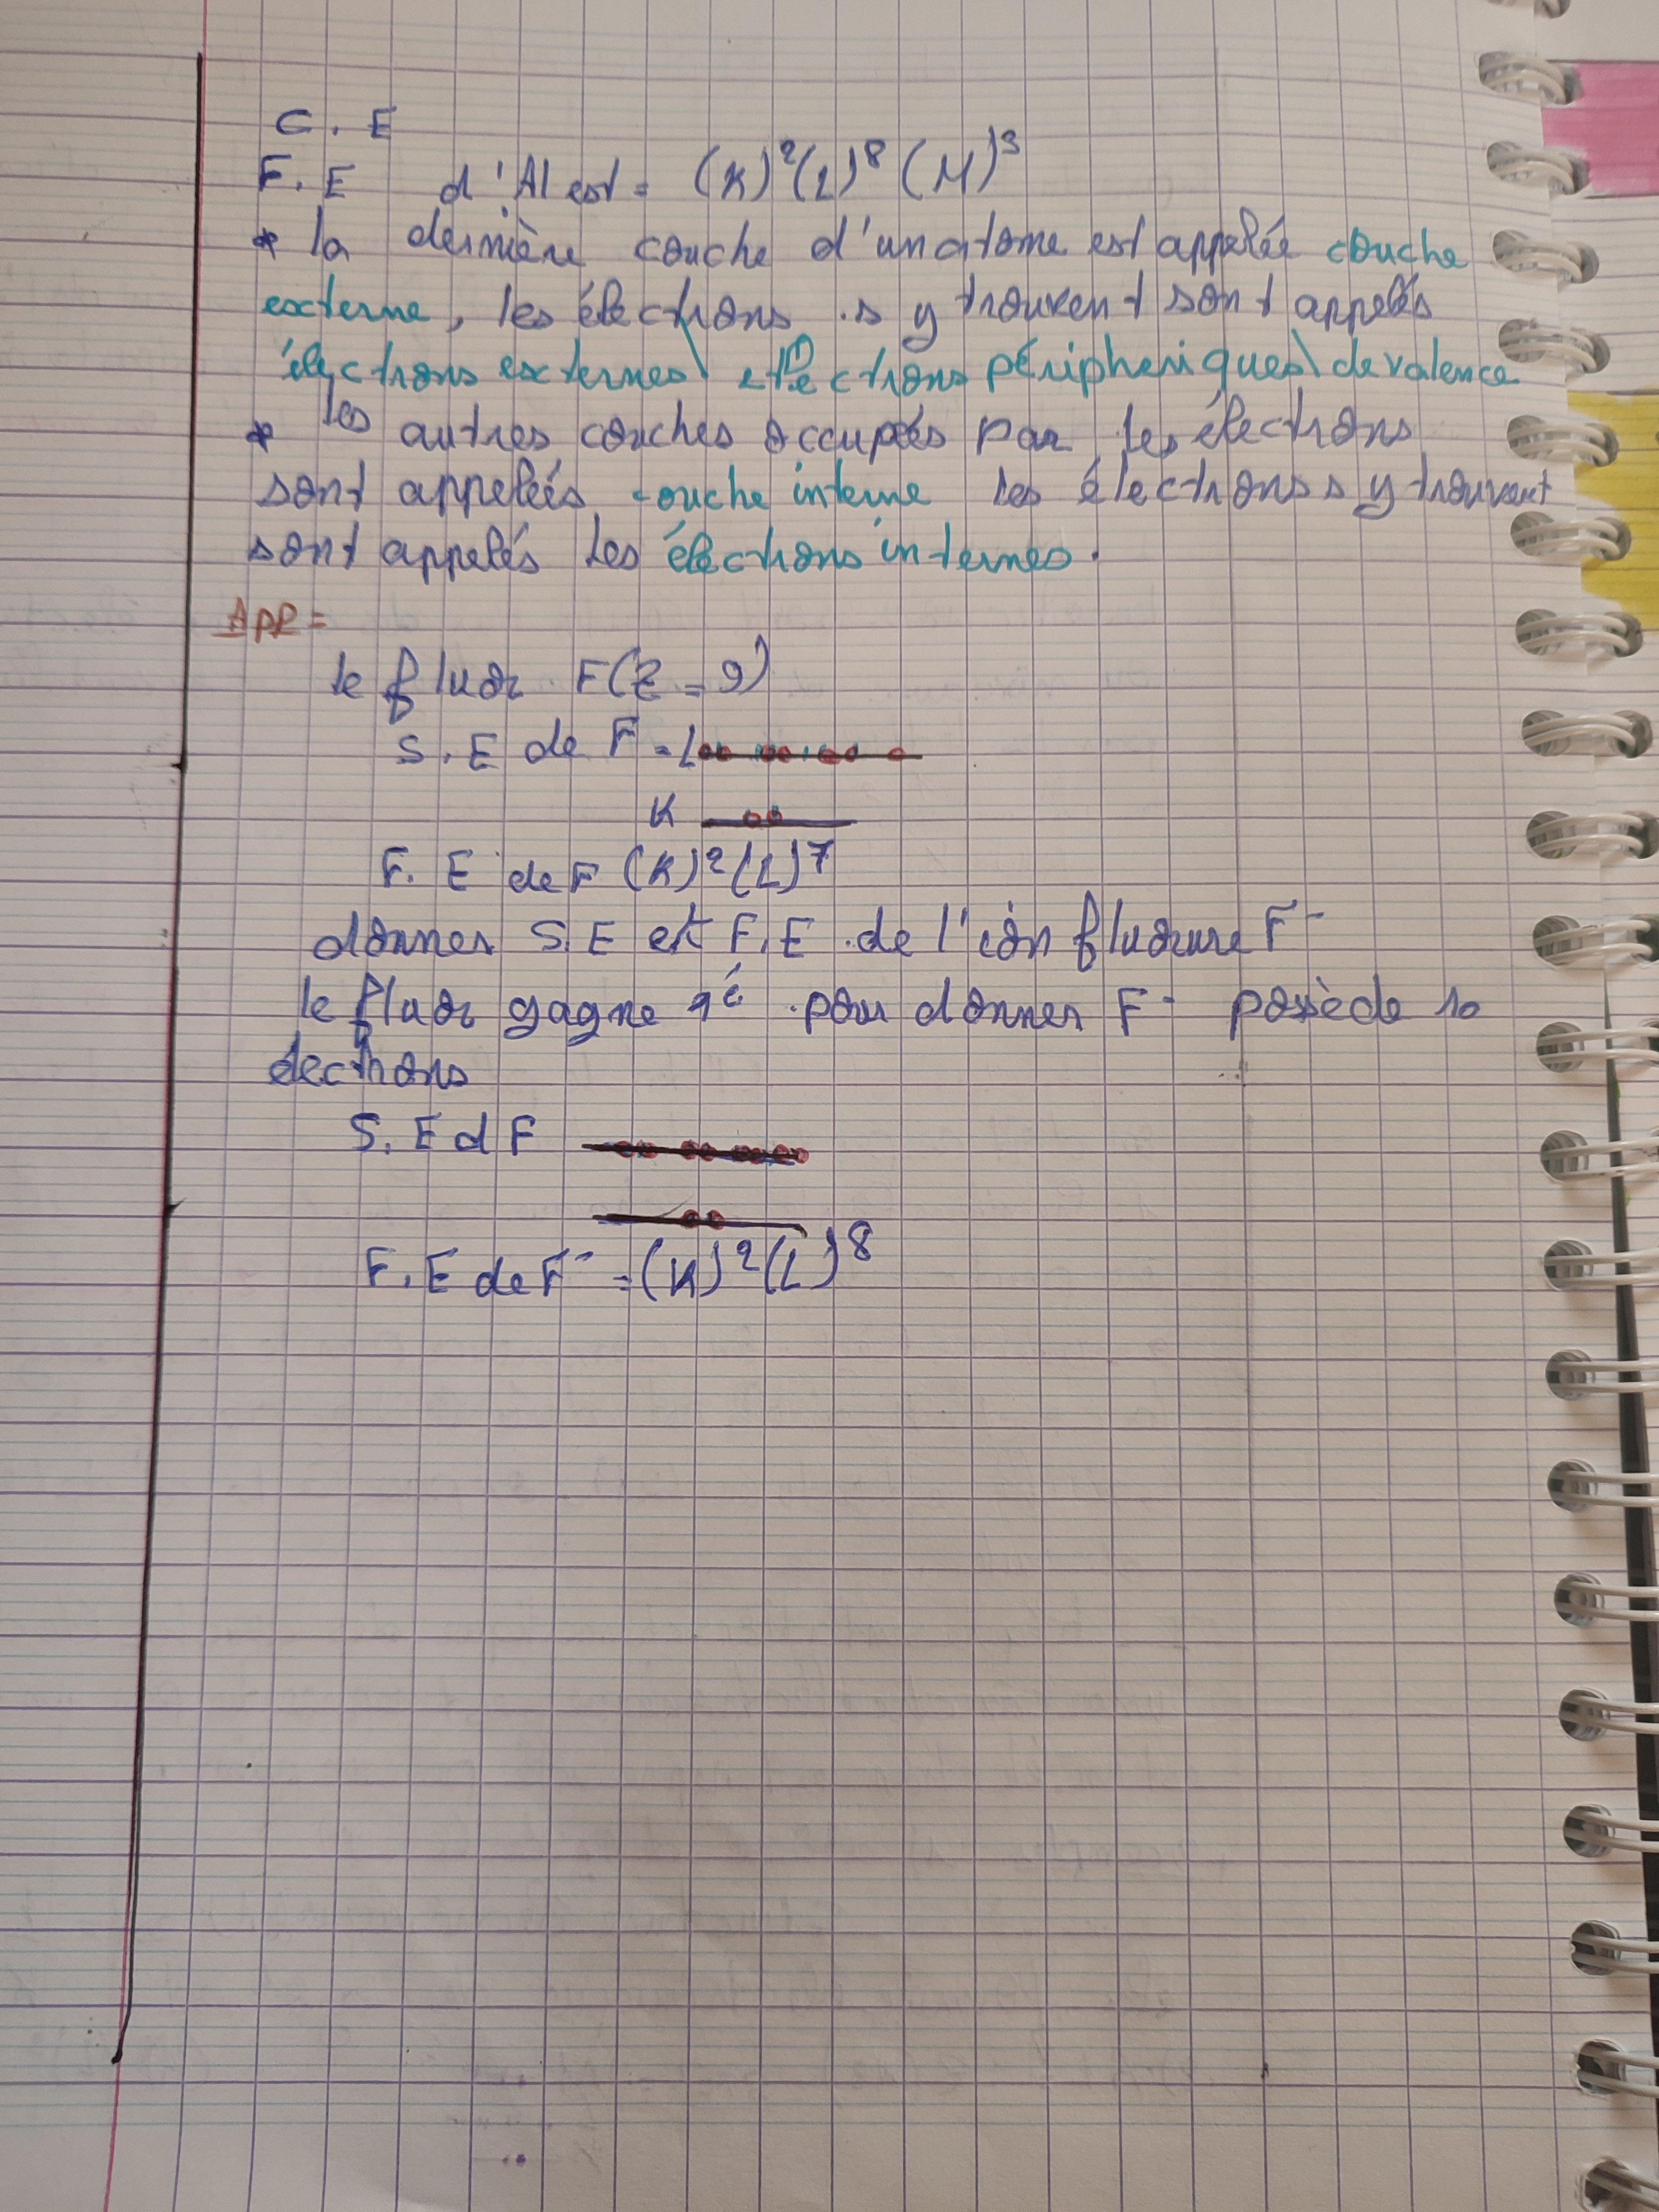 C. E
F. E d'Al est = (K)² (L)⁸ (M)³
* la dernière couche d'un atome est appelée couche
externe, les électrons s y trouvent sont appelés
électrons externes\ électrons péripheriques\ de valence
* les autres couches occupées par les électrons
sont appelées couche interne les électrons s y trouvent
sont appelés les électrons internes.
APP =
le fluor F(Z = 9)
S. E de F = L
K
F. E de F (K)² (L)⁷
donner S.E et F.E de l'ion fluorure F⁻
le fluor gagne 1é pour donner F⁻ possède 10
électrons
S. E d F
F. E de F⁻ = (K)² (L)⁸